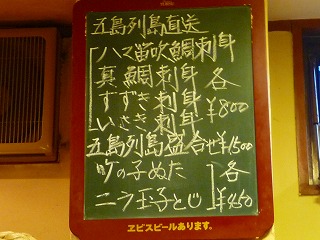 五島列島直送
ハマ笛吹鯛刺身
真鯛刺身 各
すずき刺身 ¥800
いさき刺身
五島列島盛合せ¥1500
竹の子ぬた 各
ニラ玉子とじ ¥450
ヱビスビールあります。